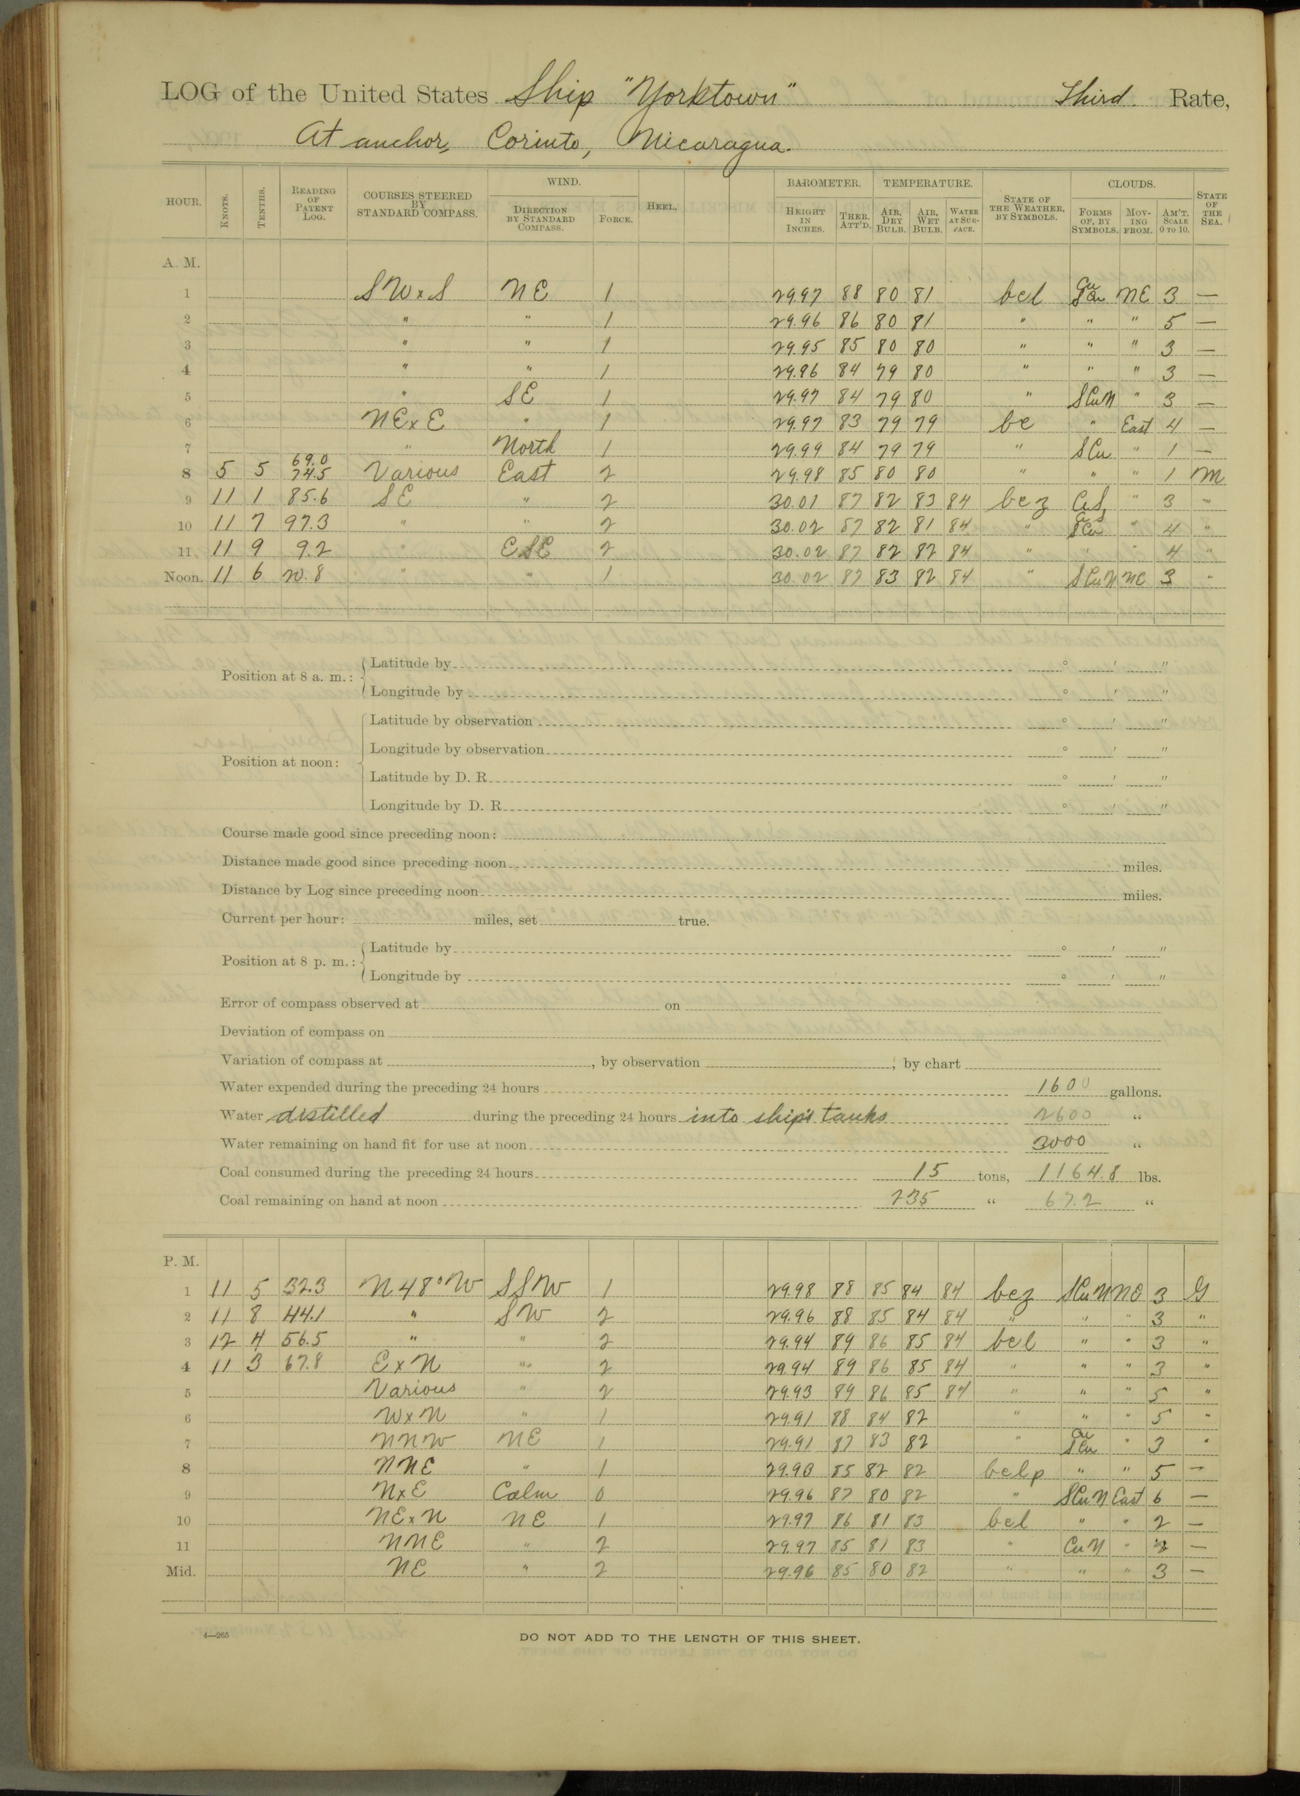 LOG of the United States Ship "Yorktown" Third Rate,
At anchor, Corinto, Nicaragua.
HOUR. KNOTS. TENTHS. READING OF PATENT LOG. COURSES STEERED BY STANDARD COMPASS. WIND. DIRECTION BY STANDARD COMPASS. FORCE. HEEL. BAROMETER. HEIGHT IN INCHES. THER. ATT'D. TEMPERATURE. AIR, DRY BULB. AIR, WET BULB. WATER AT SUR-FACE. STATE OF THE WEATHER, BY SYMBOLS. CLOUDS. FORMS OF, BY SYMBOLS. MOV-ING FROM. AM'T. SCALE 0 TO 10. STATE OF THE SEA.
A. M.
1 SWxS NE 1 29.97 88 80 81 bcl Cu SCu NE 3 —
2 " " 1 29.96 86 80 81 " " " 5 —
3 " " 1 29.95 85 80 80 " " " 3 —
4 " " 1 29.96 84 79 80 " " " 3 —
5 " SE 1 29.97 84 79 80 " SCuN " 3 —
6 NExE " 1 29.97 83 79 79 bc " East 4 —
7 " North 1 29.99 84 79 79 " SCu " 1 —
69.0
8 5 5 74.5 Various East 2 29.98 85 80 80 " " " 1 M
9 11 1 85.6 SE " 2 30.01 87 82 83 84 bcz CiS " 3 "
10 11 7 97.3 " " 2 30.02 87 82 81 84 " SCu " 4 "
11 11 9 9.2 " ESE 2 30.02 87 82 82 84 " " " 4 "
Noon. 11 6 20.8 " " 1 30.02 87 83 82 84 " SCuN NE 3 "
Position at 8 a. m.: Latitude by ° ' "
Longitude by ° ' "
Position at noon: Latitude by observation ° ' "
Longitude by observation ° ' "
Latitude by D. R. ° ' "
Longitude by D. R. ° ' "
Course made good since preceding noon:
Distance made good since preceding noon miles.
Distance by Log since preceding noon miles.
Current per hour: miles, set true.
Position at 8 p. m.: Latitude by ° ' "
Longitude by ° ' "
Error of compass observed at on
Deviation of compass on
Variation of compass at , by observation ; by chart
Water expended during the preceding 24 hours 1600 gallons.
Water distilled during the preceding 24 hours into ship's tanks 2600 "
Water remaining on hand fit for use at noon 3000 "
Coal consumed during the preceding 24 hours 15 tons, 1164.8 lbs.
Coal remaining on hand at noon 235 " 67.2 "
P. M.
1 11 5 32.3 N48°W SSW 1 29.98 88 85 84 84 bcz SCuN NE 3 G
2 11 8 44.1 " SW 2 29.96 88 85 84 84 " " " 3 "
3 12 4 56.5 " " 2 29.94 89 86 85 84 bcl " " 3 "
4 11 3 67.8 ExN " 2 29.94 89 86 85 84 " " " 3 "
5 Various " 2 29.93 89 86 85 84 " " " 5 "
6 WxN " 1 29.91 88 84 82 " " " 5 "
7 NNW NE 1 29.91 87 83 82 " Cu SCu " 3 "
8 NNE " 1 29.93 85 82 82 bclp " " 5 —
9 NxE Calm 0 29.96 87 80 82 " SCuN East 6 —
10 NExN NE 1 29.97 86 81 83 bcl " " 2 —
11 NNE " 2 29.97 85 81 83 " CuN " 2 —
Mid. NE " 2 29.96 85 80 82 " " " 3 —
4—265
DO NOT ADD TO THE LENGTH OF THIS SHEET.